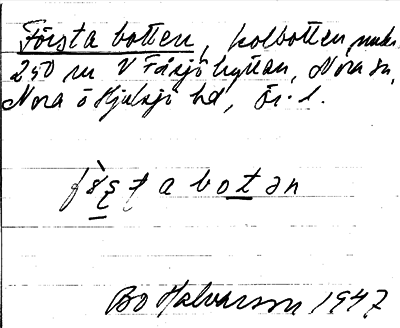 Första botten, kolbotten, mitt
250 m V Fåsjöhyttan, Nora sn,
Nora o Hjulsjö hd, Ör. l.
fö̀ṣṭa botən
Bo Halvarson 1947